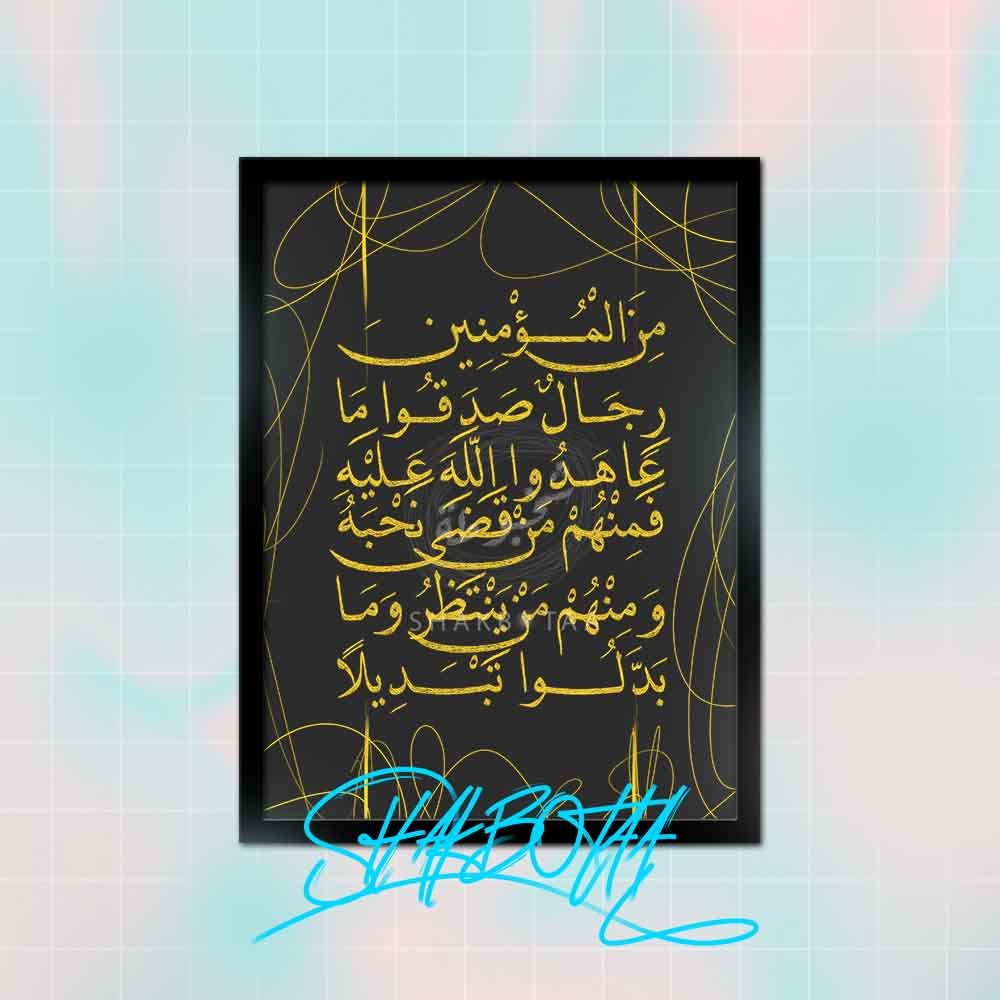 مِنَ الْمُؤْمِنِينَ
رِجَالٌ صَدَقُوا مَا
عَاهَدُوا اللَّهَ عَلَيْهِ
فَمِنْهُمْ مَنْ قَضَى نَحْبَهُ
وَمِنْهُمْ مَنْ يَنْتَظِرُ وَمَا
بَدَّلُوا تَبْدِيلًا
شخبوطة
SHAKBOTA
SHAKBOTAA